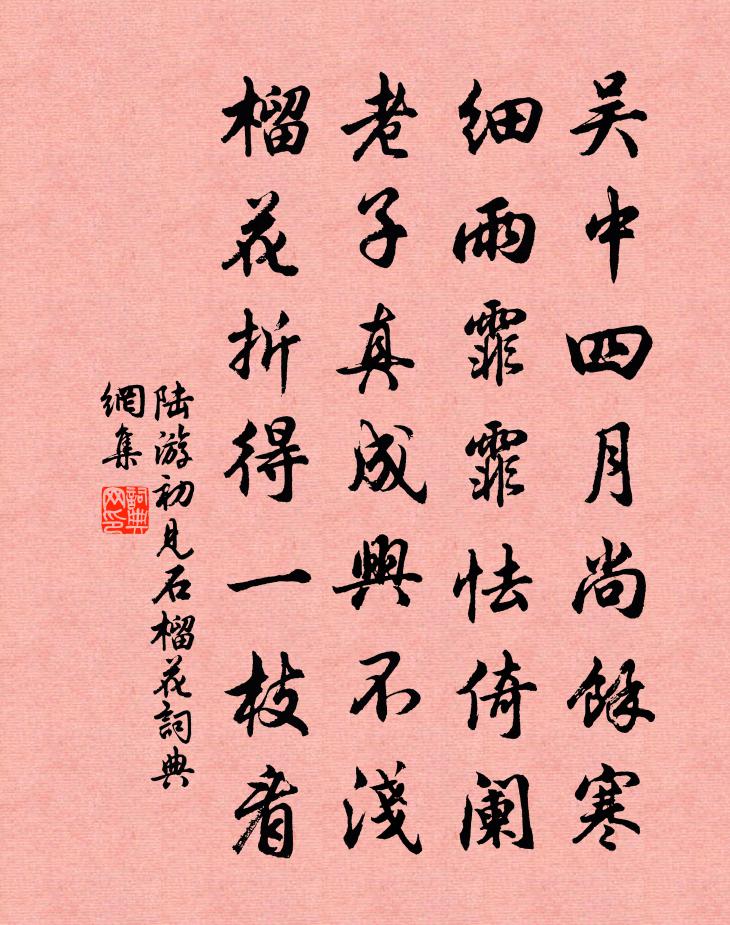 吴中四月尚馀寒
细雨霏霏怯倚阑
老子真成興不淺
榴花折得一枝看
陆游初見石榴花詞典
網集
詞典
网印